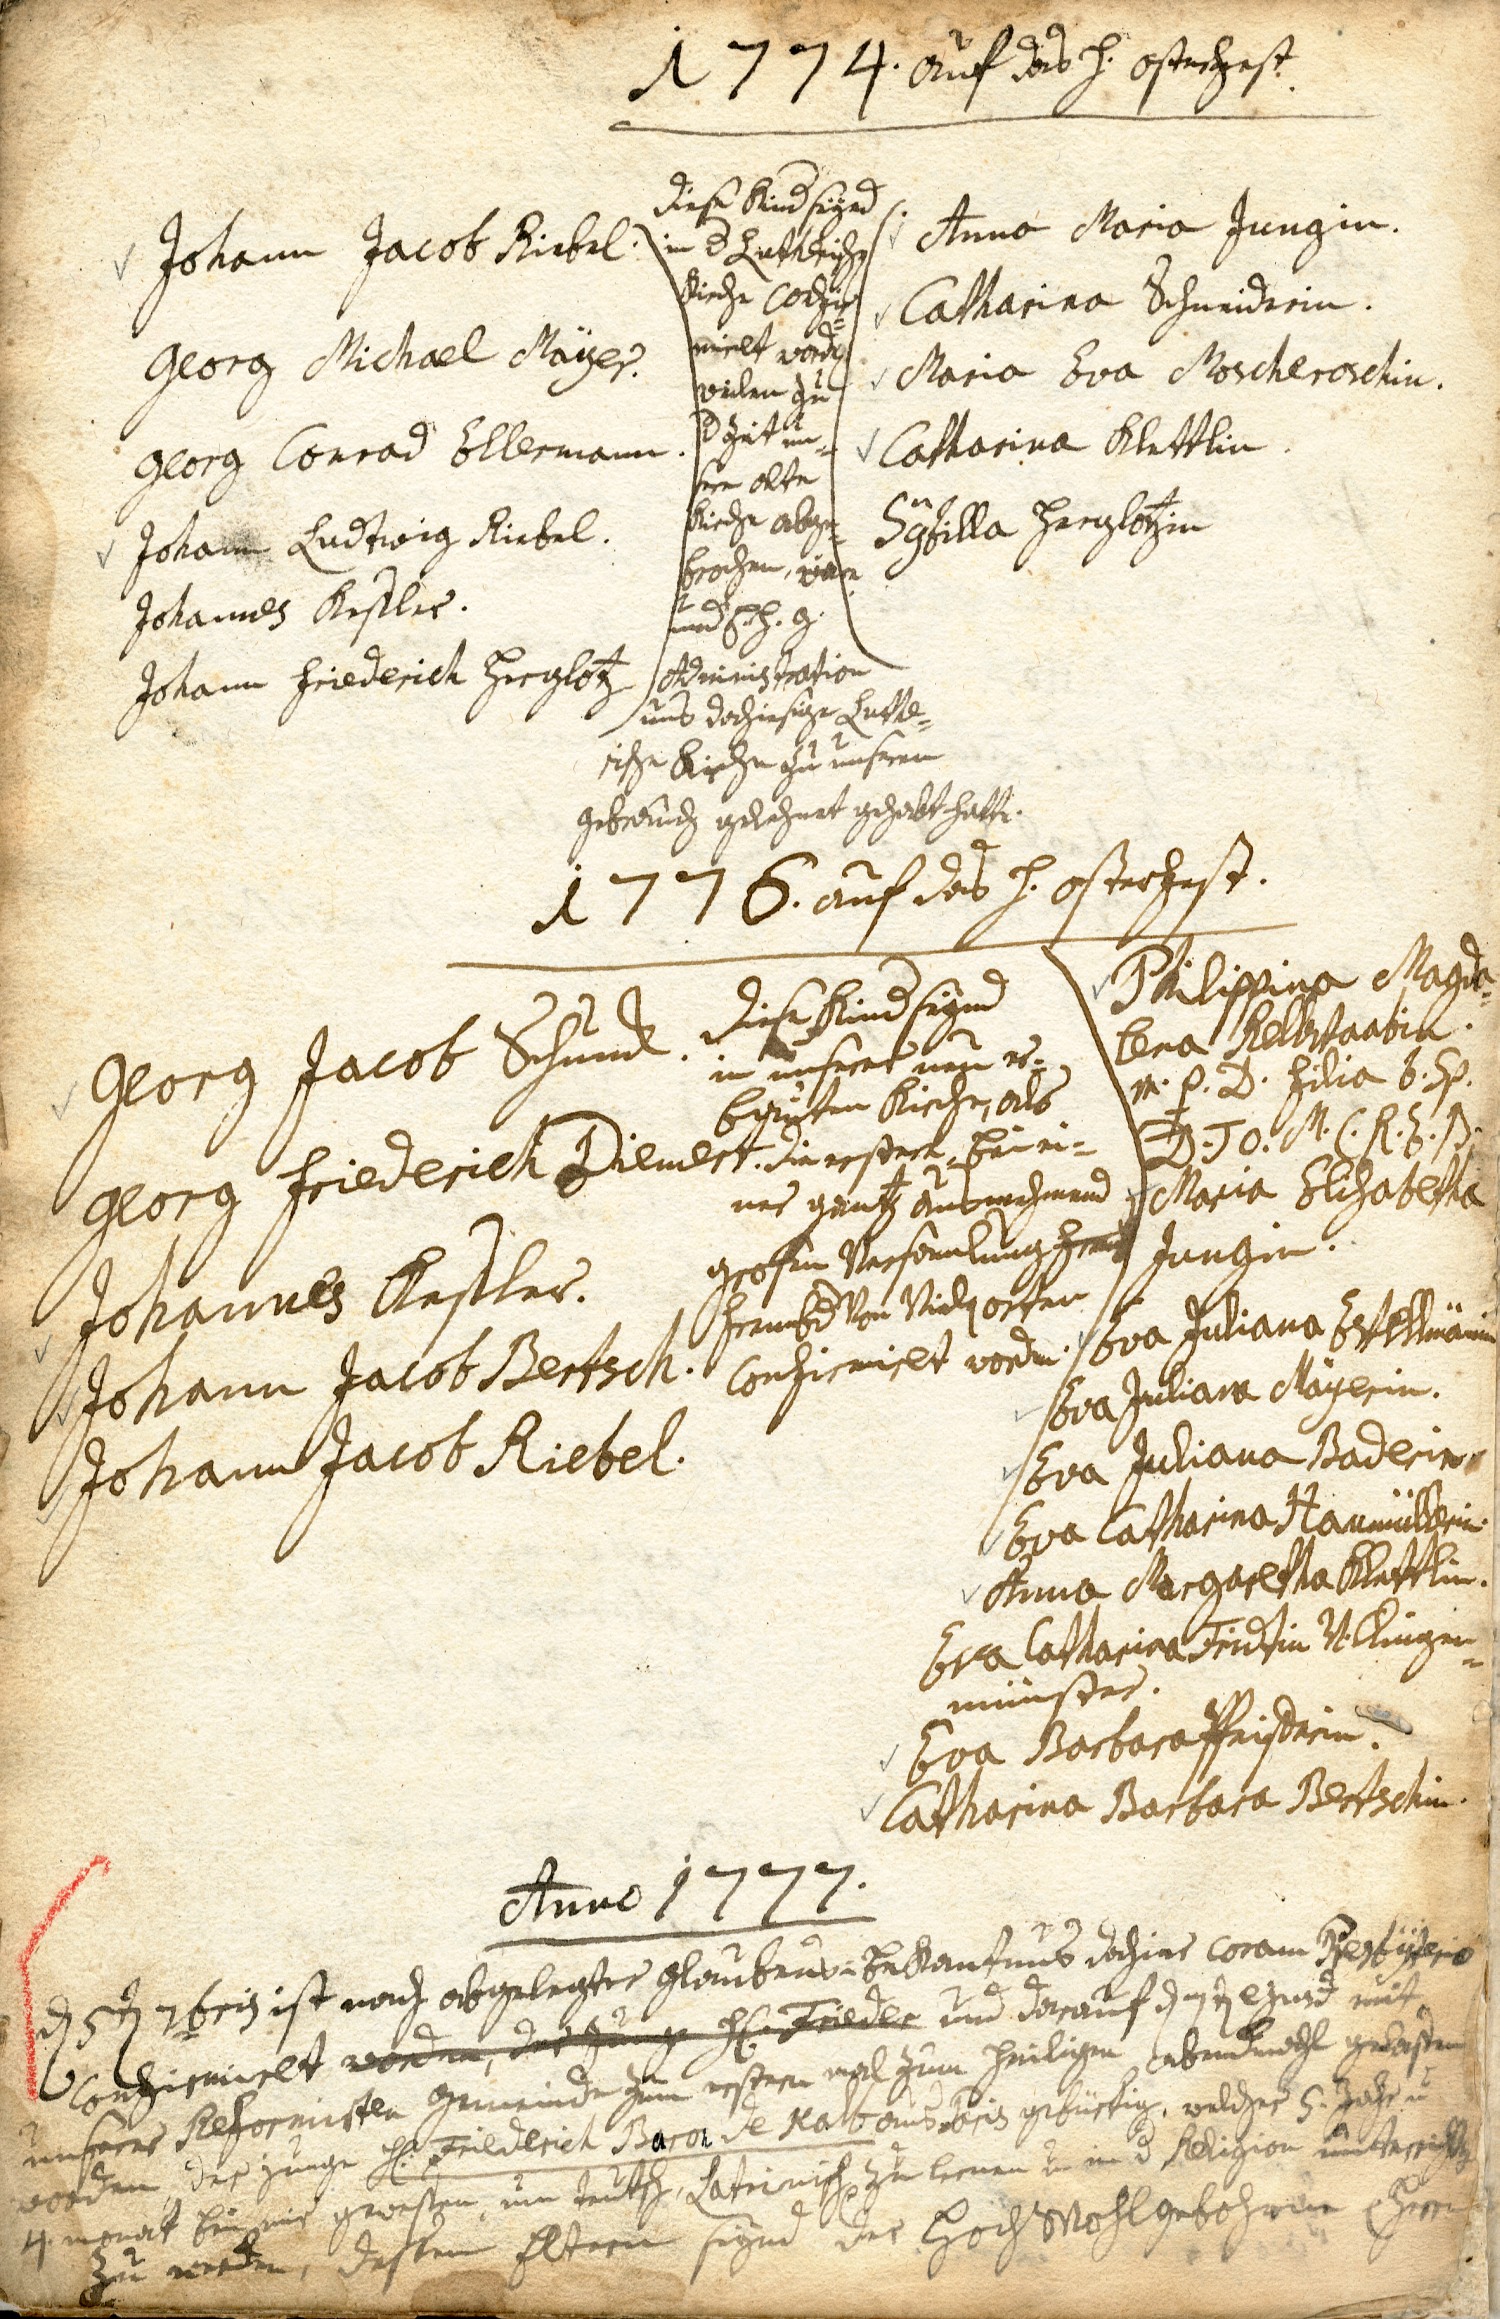 1774. auf das H. osterfest.
Johann Jacob Riebel.
Georg Michael Mäÿer.
Georg Conrad Ellermann.
Johann Ludwig Riebel.
Johannes Kestler.
Johann Friederich Herglotz
diese Kind seÿnd
in d Lutherische
Kirche Confir=
mirt word
weilen zu
d Zeit un=
sere alte
Kirche abge=
brochen, ware
und
Administration
uns dahiesige Luthe=
rische Kirche zu unserem
gebrauch gelehnet gehabt hatte.
Anna Maria Jungin.
Catharina Schneiderin.
Maria Eva Moscheroschin.
Catharina Klettlin.
Sÿbilla Herglotzin
1776. auf das H. osterfest.
Georg Jacob Schunck.
Georg Friederich Diemer.
Johannes Kestler.
Johann Jacob Bertsch.
Johann Jacob Riebel.
diese Kind seÿnd
in unserer neu er=
bauten Kirche, als
die ersten, beÿ ei=
ner gantz ausnehmend
grosen Versamlung
frembd Von Viel orten
Confirmirt worden.
Philippina Magda=
lena
m. p. D. filia
D. Jo. M. C. R. E. P.
Maria Elisabetha
Jungin.
Eva Juliana
Eva Juliana Mäÿerin.
Eva Juliana Baderin
Eva Catharina Haumüllerin.
Anna Margaretha Klettlin.
Eva Catharina V. Klingen=
münster.
Eva Barbara Pfeisterin.
Catharina Barbara Bertschin.
Anno 1777.
d 5t 7bris ist nach abgelegter Glaubens-bekantnus dahier coram Presbÿterio
Confirmirt worden, der junge H. Frieder und darauf d 7t ejusd mit
unserer Reformirten Gemeinde zum ersten mal zum Heiligen abendmahl gegangen
worden, der junge H. Friederich Baron de Kalb aus Paris gebürtig, welcher 5. Jahr u
4. monat beÿ mir gewesen, um teutsch, Lateinisch zu lernen u in d Religion unterrichtet
zu werden, dessen Eltern seÿnd der HochWohlgebohrne Herr